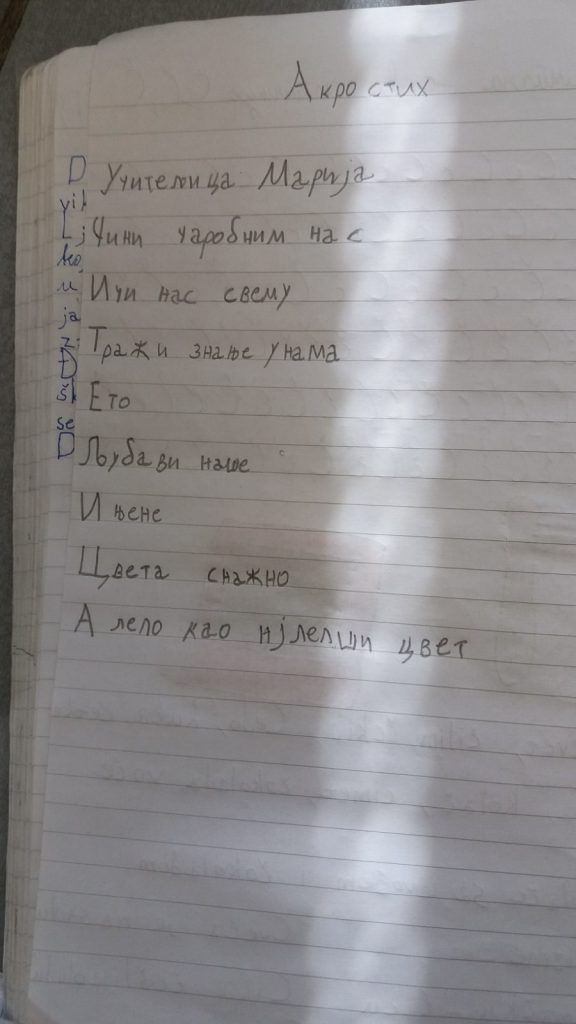 Акростих
Учитељица Марија
Чини чаробним нас
И чи нас свему
Тражи знање у нама
Ето
Љубави наше
И њене
Цвета снажно
А лепо као нјлепши цвет